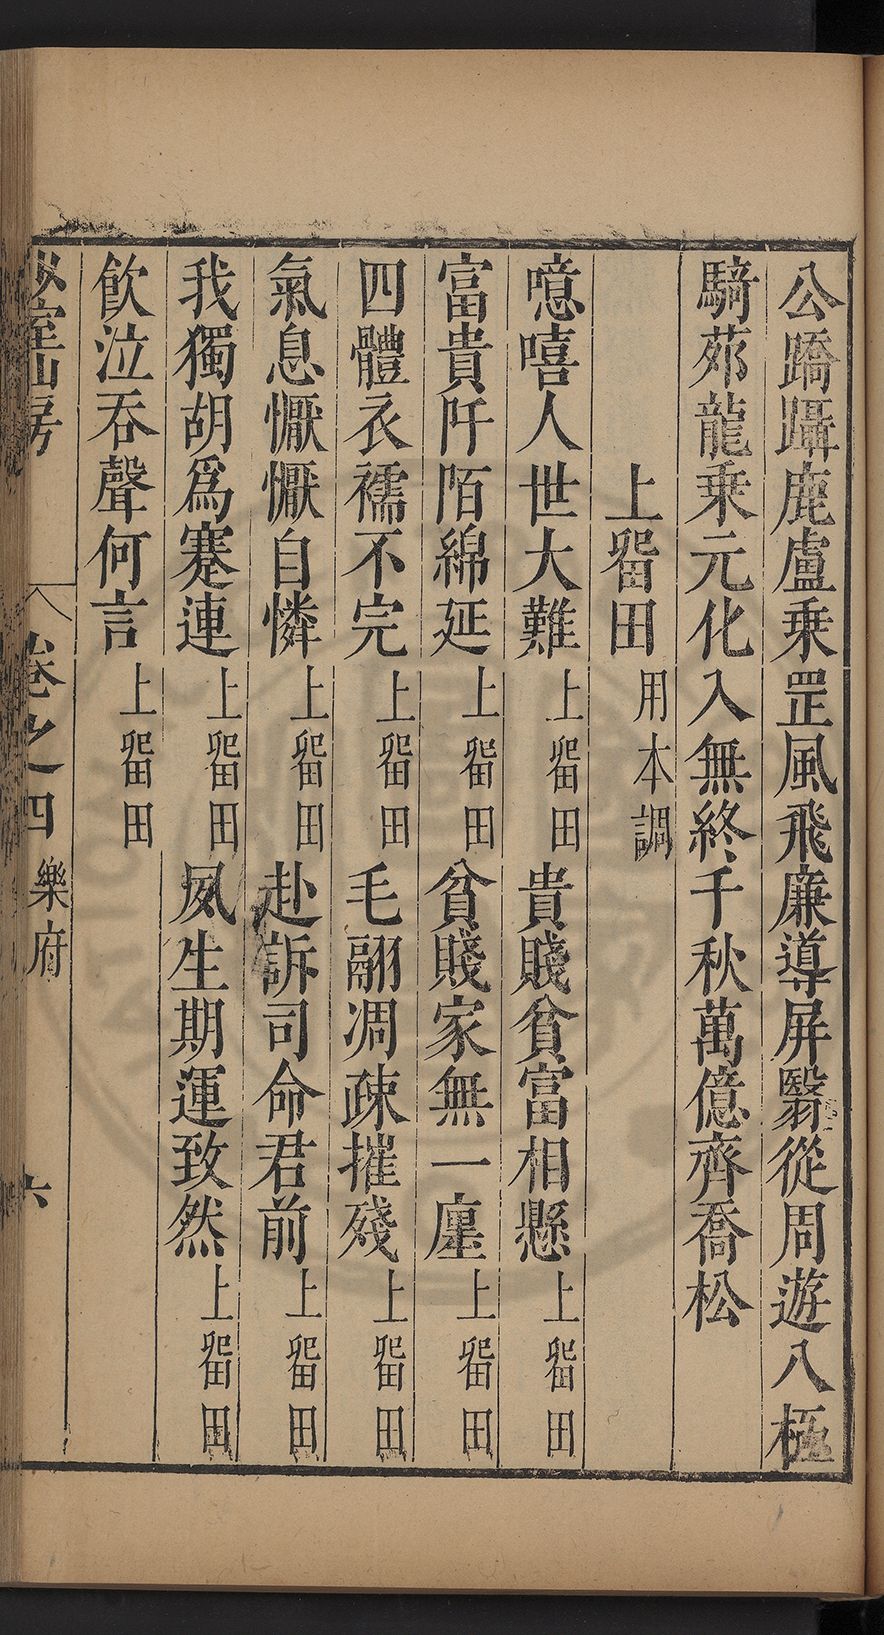 公蹻躡鹿盧乗罡風飛廉導屏翳從周遊八極
騎茆龍乗元化入無終千秋萬億齊喬松
上畱田用本調
噫嘻人世大難上畱田貴賤貧富相懸上畱田
富貴阡陌綿延上畱田貧賤家無一廛上畱田
四體衣襦不完上畱田毛翮凋疎摧殘上畱田
氣息懨懨自憐上畱田赴訴司命君前上畱田
我獨胡爲蹇連上畱田夙生期運致然上畱田
飲泣吞聲何言上畱田
室山房 卷之四 樂府 六